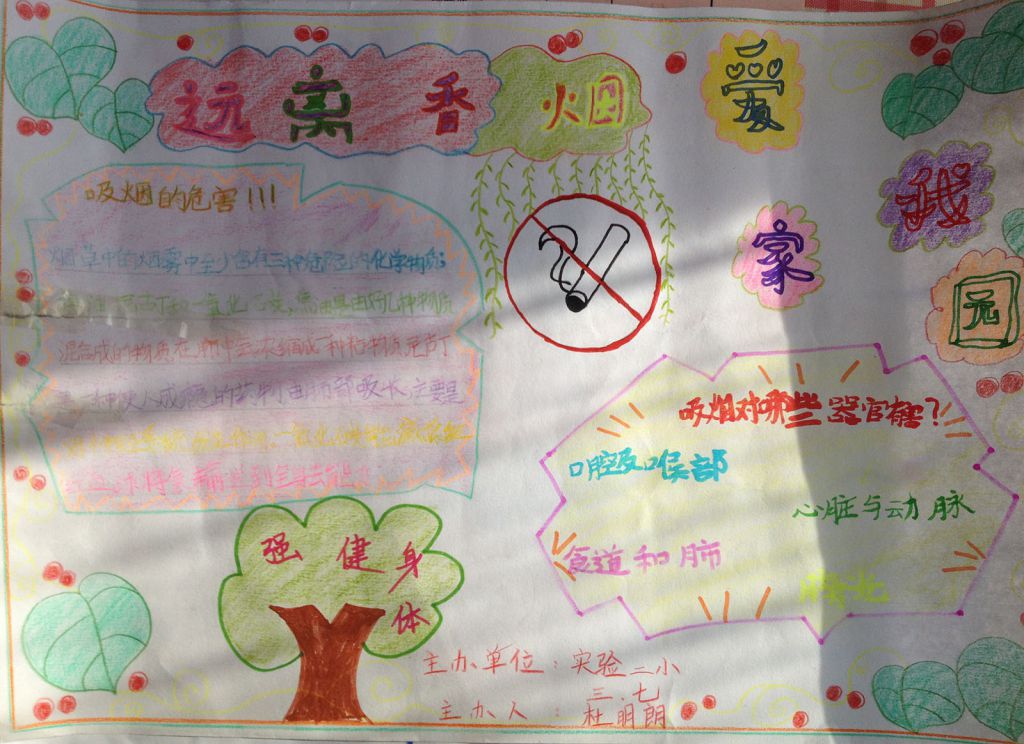 远离香烟
爱我家园
吸烟的危害!!!
烟草中的烟雾中至少含有三种危险的化学物质:
焦油,尼古丁和一氧化碳,焦油是由好几种物质
混合成的物质在肺中会浓缩成一种粘物质尼古丁
是一种使人成瘾的药剂由肺部吸收主要是
吸烟对哪些器官有害?
口腔及喉部
心脏与动脉
食道和肺
强健身体
主办单位:实验二小
三.七
主办人:杜明朗